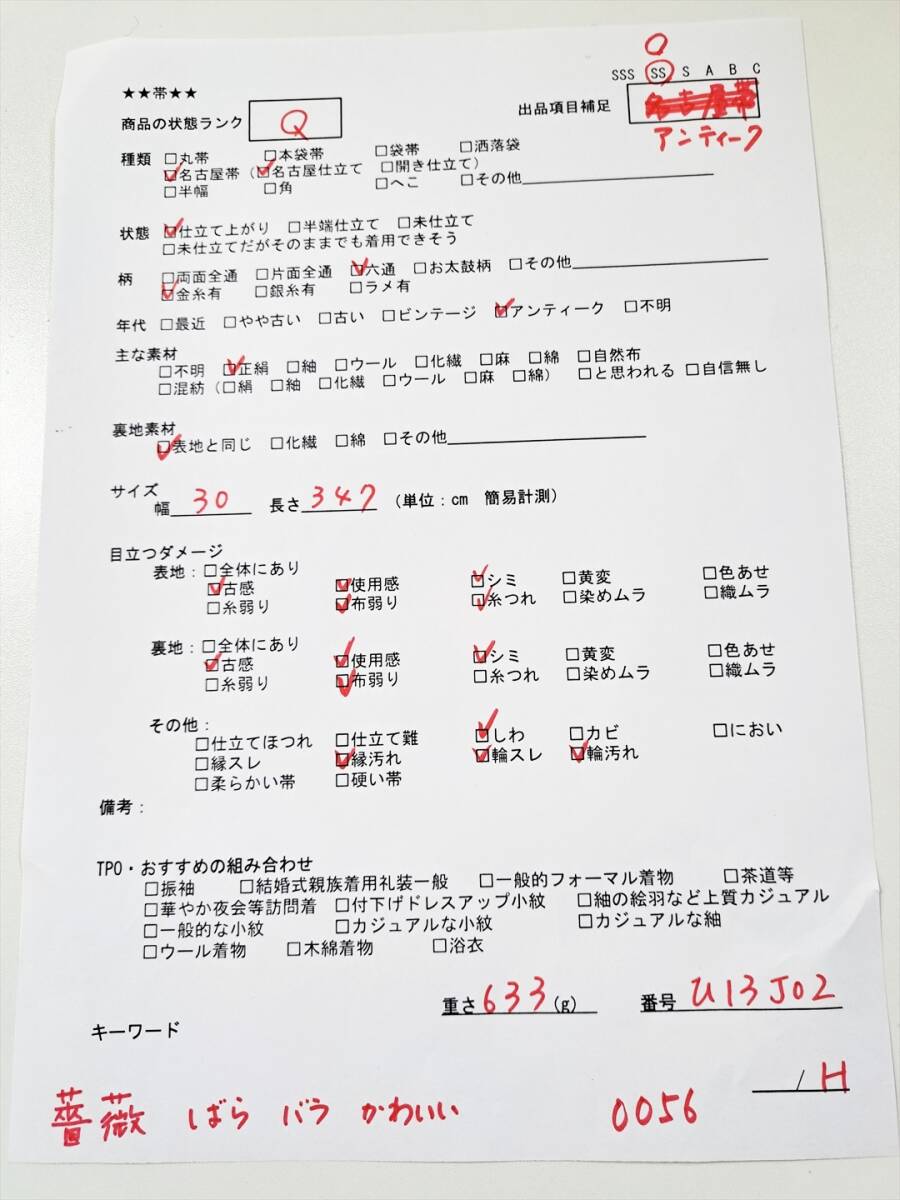 ○
SSS SS S A B C
★★帯★★
商品の状態ランク Q 出品項目補足 名古屋帯
アンティーク
種類 □丸帯 □本袋帯 □袋帯 □洒落袋
☑名古屋帯 (☑名古屋仕立て □開き仕立て)
□半幅 □角 □へこ □その他
状態 ☑仕立て上がり □半端仕立て □未仕立て
□未仕立てだがそのままでも着用できそう
柄 □両面全通 □片面全通 ☑六通 □お太鼓柄 □その他
☑金糸有 □銀糸有 □ラメ有
年代 □最近 □やや古い □古い □ビンテージ ☑アンティーク □不明
主な素材
□不明 ☑正絹 □紬 □ウール □化繊 □麻 □綿 □自然布
□混紡 (□絹 □紬 □化繊 □ウール □麻 □綿) □と思われる □自信無し
裏地素材
☑表地と同じ □化繊 □綿 □その他
サイズ
幅 30 長さ 347 (単位:cm 簡易計測)
目立つダメージ
表地:□全体にあり
☑古感 ☑使用感 ☑シミ □黄変 □色あせ
□糸弱り ☑布弱り ☑糸つれ □染めムラ □織ムラ
裏地:□全体にあり
☑古感 ☑使用感 ☑シミ □黄変 □色あせ
□糸弱り ☑布弱り □糸つれ □染めムラ □織ムラ
その他:
□仕立てほつれ □仕立て難 ☑しわ □カビ □におい
□縁スレ ☑縁汚れ ☑輪スレ ☑輪汚れ
□柔らかい帯 □硬い帯
備考:
TPO・おすすめの組み合わせ
□振袖 □結婚式親族着用礼装一般 □一般的フォーマル着物 □茶道等
□華やか夜会等訪問着 □付下げドレスアップ小紋 □紬の絵羽など上質カジュアル
□一般的な小紋 □カジュアルな小紋 □カジュアルな紬
□ウール着物 □木綿着物 □浴衣
重さ 633 (g) 番号 U13J02
キーワード
/ H
薔薇 ばら バラ かわいい 0056